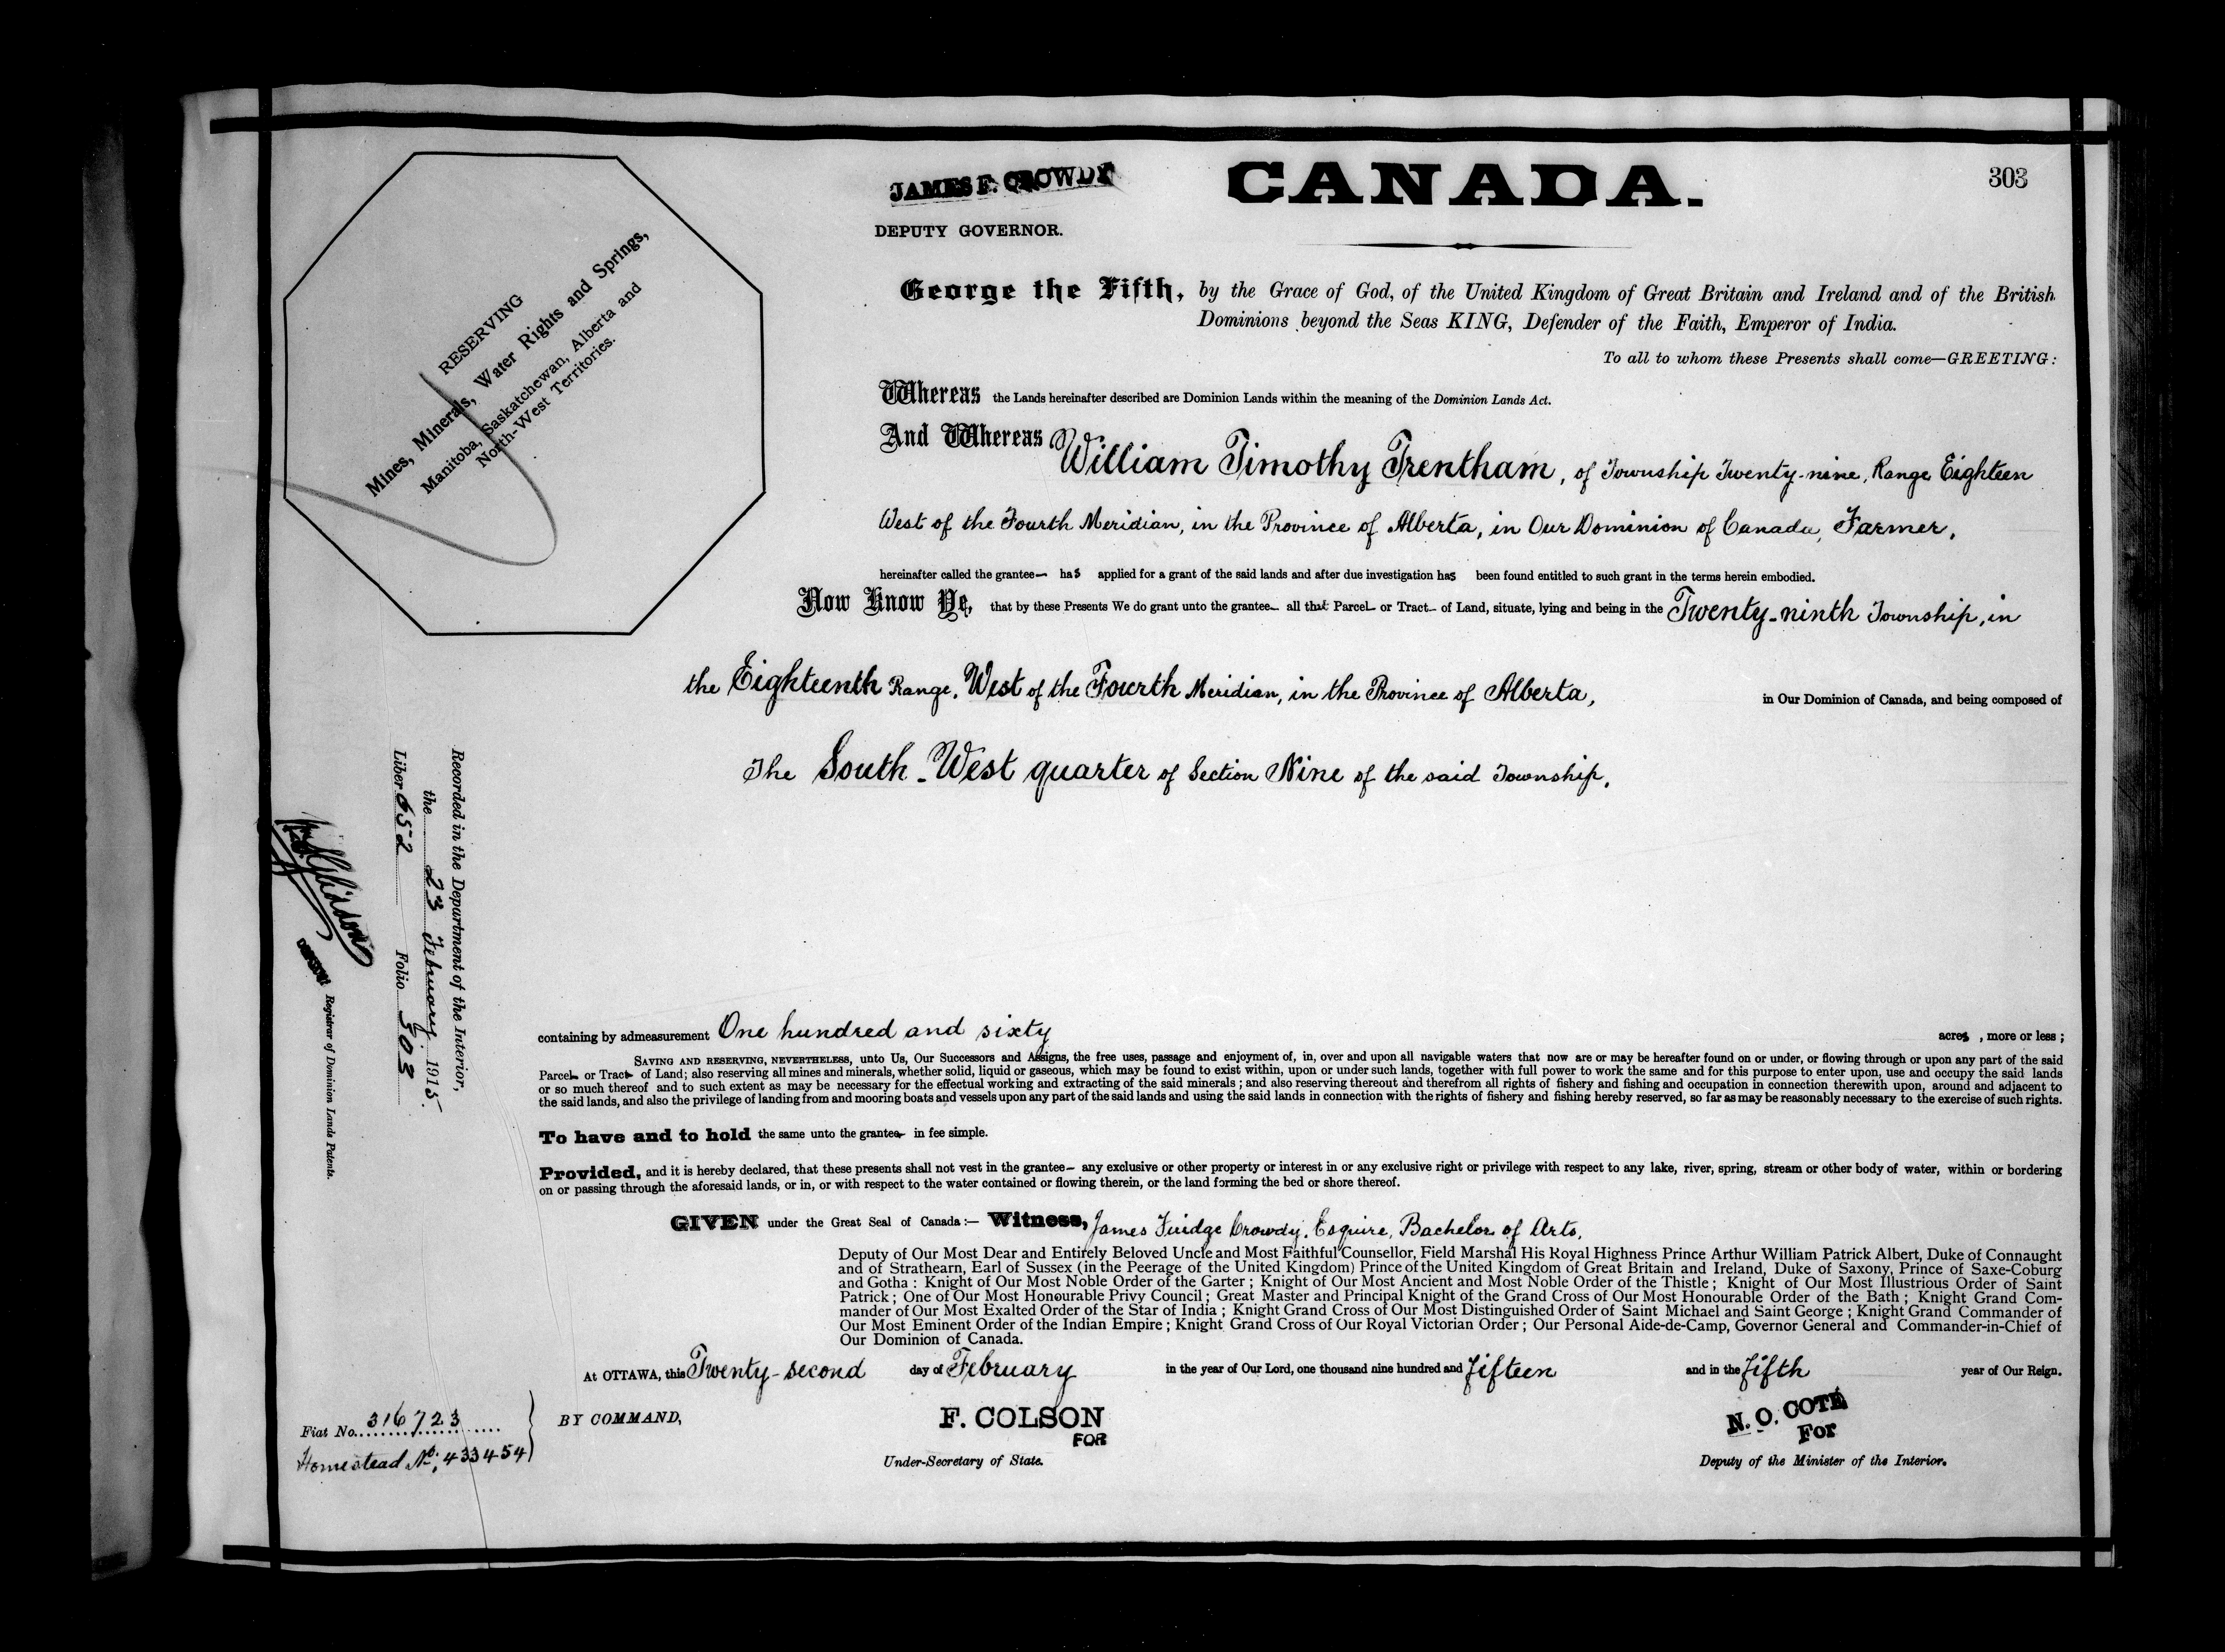 JAMES F. CROWDY
DEPUTY GOVERNOR.
CANADA.
303
RESERVING
Mines, Minerals, Water Rights and Springs,
Manitoba, Saskatchewan, Alberta and
North-West Territories.
George the Fifth, by the Grace of God, of the United Kingdom of Great Britain and Ireland and of the British
Dominions beyond the Seas KING, Defender of the Faith, Emperor of India.
To all to whom these Presents shall come—GREETING:
Whereas the Lands hereinafter described are Dominion Lands within the meaning of the Dominion Lands Act.
And Whereas William Timothy Trentham, of Township Twenty-nine, Range Eighteen
West of the Fourth Meridian, in the Province of Alberta, in Our Dominion of Canada, Farmer,
hereinafter called the grantee— has applied for a grant of the said lands and after due investigation has been found entitled to such grant in the terms herein embodied.
Now Know Ye, that by these Presents We do grant unto the grantee— all that Parcel— or Tract— of Land, situate, lying and being in the Twenty-ninth Township, in
the Eighteenth Range, West of the Fourth Meridian, in the Province of Alberta, in Our Dominion of Canada, and being composed of
The South-West quarter of Section Nine of the said Township,
containing by admeasurement One hundred and sixty acres, more or less;
SAVING AND RESERVING, NEVERTHELESS, unto Us, Our Successors and Assigns, the free uses, passage and enjoyment of, in, over and upon all navigable waters that now are or may be hereafter found on or under, or flowing through or upon any part of the said
Parcel— or Tract— of Land; also reserving all mines and minerals, whether solid, liquid or gaseous, which may be found to exist within, upon or under such lands, together with full power to work the same and for this purpose to enter upon, use and occupy the said lands
or so much thereof and to such extent as may be necessary for the effectual working and extracting of the said minerals; and also reserving thereout and therefrom all rights of fishery and fishing and occupation in connection therewith upon, around and adjacent to
the said lands, and also the privilege of landing from and mooring boats and vessels upon any part of the said lands and using the said lands in connection with the rights of fishery and fishing hereby reserved, so far as may be reasonably necessary to the exercise of such rights.
To have and to hold the same unto the grantee— in fee simple.
Provided, and it is hereby declared, that these presents shall not vest in the grantee— any exclusive or other property or interest in or any exclusive right or privilege with respect to any lake, river, spring, stream or other body of water, within or bordering
on or passing through the aforesaid lands, or in, or with respect to the water contained or flowing therein, or the land forming the bed or shore thereof.
GIVEN under the Great Seal of Canada:— Witness, James Fuidge Crowdy, Esquire, Bachelor of Arts,
Deputy of Our Most Dear and Entirely Beloved Uncle and Most Faithful Counsellor, Field Marshal His Royal Highness Prince Arthur William Patrick Albert, Duke of Connaught
and of Strathearn, Earl of Sussex (in the Peerage of the United Kingdom) Prince of the United Kingdom of Great Britain and Ireland, Duke of Saxony, Prince of Saxe-Coburg
and Gotha: Knight of Our Most Noble Order of the Garter; Knight of Our Most Ancient and Most Noble Order of the Thistle; Knight of Our Most Illustrious Order of Saint
Patrick; One of Our Most Honourable Privy Council; Great Master and Principal Knight of the Grand Cross of Our Most Honourable Order of the Bath; Knight Grand Com-
mander of Our Most Exalted Order of the Star of India; Knight Grand Cross of Our Most Distinguished Order of Saint Michael and Saint George; Knight Grand Commander of
Our Most Eminent Order of the Indian Empire; Knight Grand Cross of Our Royal Victorian Order; Our Personal Aide-de-Camp, Governor General and Commander-in-Chief of
Our Dominion of Canada.
At OTTAWA, this Twenty-second day of February in the year of Our Lord, one thousand nine hundred and fifteen and in the fifth year of Our Reign.
BY COMMAND,
F. COLSON
FOR
Under-Secretary of State.
N. O. COTE
For
Deputy of the Minister of the Interior.
Fiat No. 316723
Homestead No. 433454
Recorded in the Department of the Interior,
the 23 February 1915.
Liber 652 Folio 303
Registrar of Dominion Lands Patents.